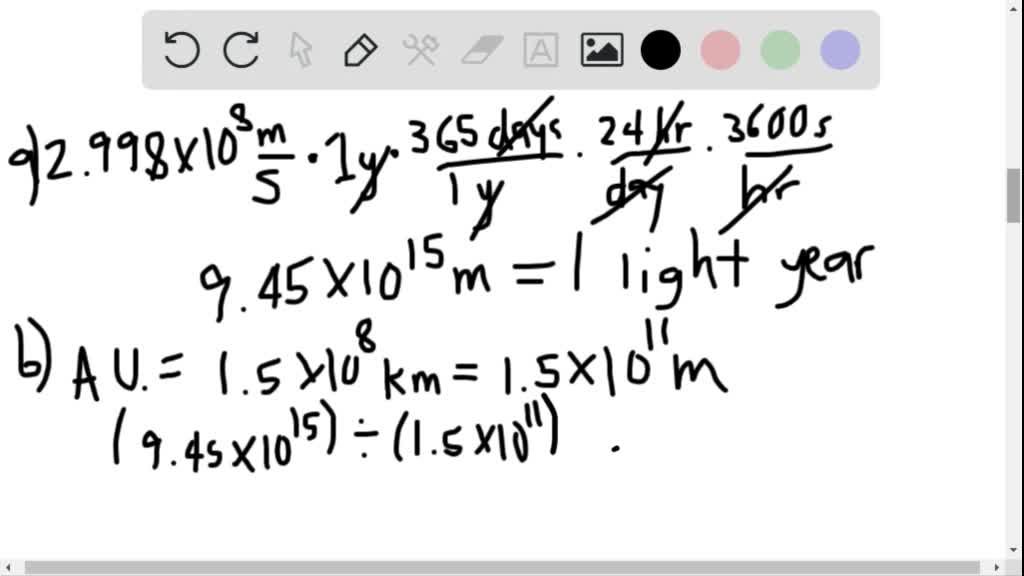 a) 2.998×10⁸ m/s · 1y · 365 days/1y · 24 hr/day · 3600s/hr
9.45×10¹⁵ m = 1 light year
b) A U. = 1.5×10⁸ km = 1.5×10¹¹ m
(9.45×10¹⁵) ÷ (1.5×10¹¹) .